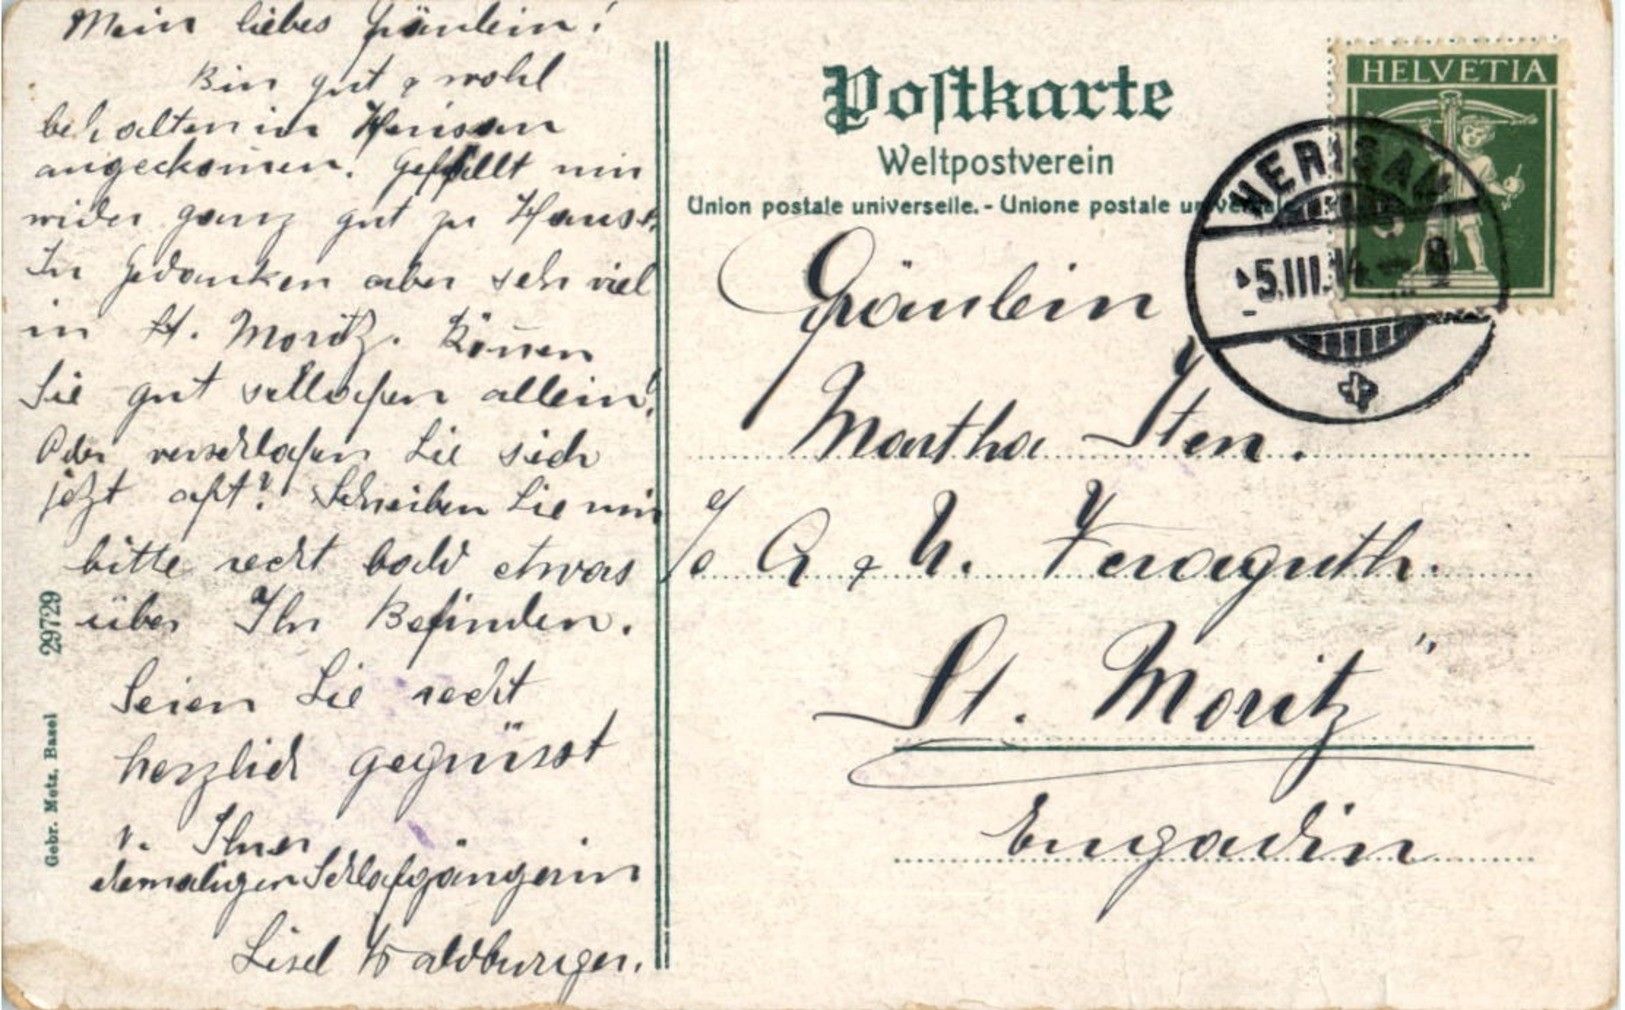 Mein liebes Fräulein!
Bin gut & wohl
behalten in Herisau
angekommen. Gefällt mir
wider ganz gut zu Hause.
In Gedanken aber sehr viel
in St. Moritz. Können
Sie gut schlafen allein?
Oder verschlafen Sie sich
jetzt oft? Schreiben Sie mir
bitte recht bald etwas
über Ihr Befinden.
Seien Sie recht
herzlich gegrüsst
v. Ihrer
ehemaligen Schlafgängerin
Lisel Waldburger.
Gebr. Metz, Basel 29729
Postkarte
Weltpostverein
Union postale universelle. - Unione postale universale
HELVETIA
HERISAU
5.III.14 - 8
Fräulein
Martha Sten.
c/o A & N. Veraguth.
St. Moritz
Engadin